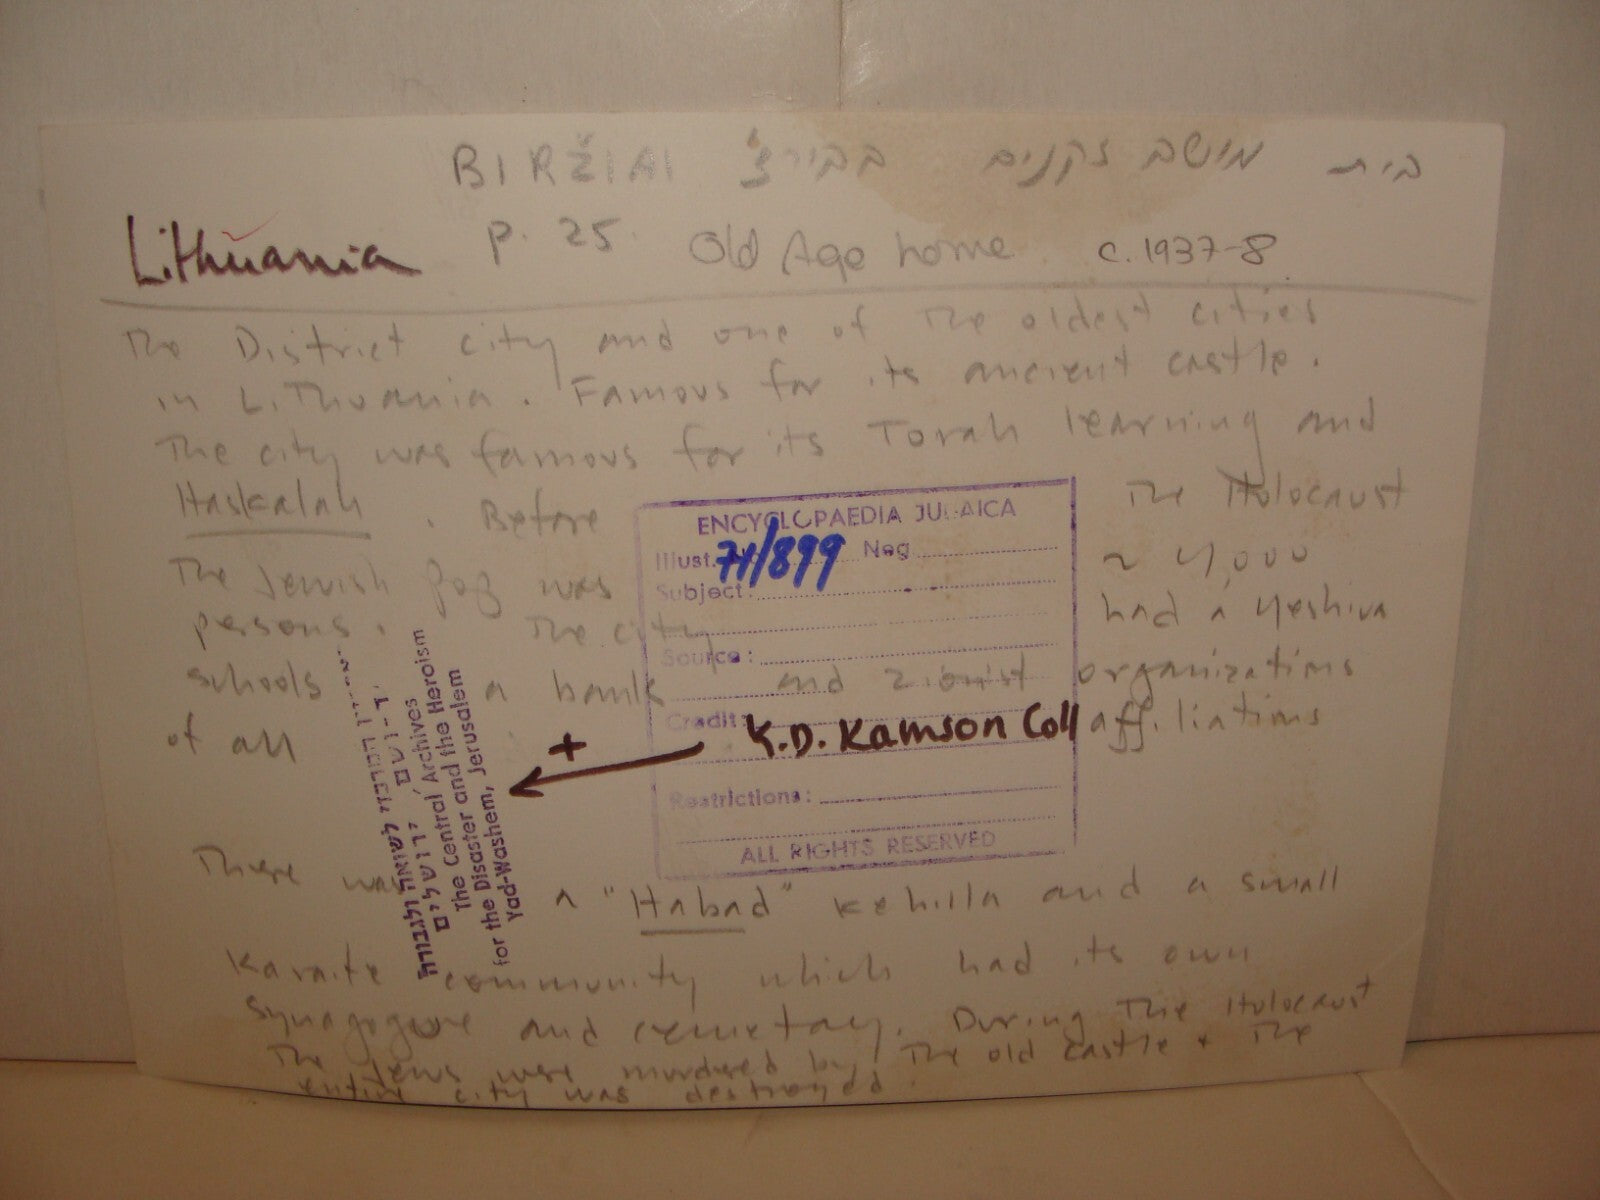 בית מושב זקנים בבירז BIRŽIAI
Lithuania p. 25. Old Age home c. 1937-8
The District city and one of The oldest cities
in Lithuania. Famous for its ancient castle.
The city was famous for its Torah learning and
Haskalah. Before The Holocaust
The Jewish pop was ~ 4,000
persons. The city had a yeshiva
schools a bank and zionist organizations
of all affiliations
There was a "Habad" kehilla and a small
Karaite community which had its own
synagogue and cemetary. During The Holocaust
The Jews were murdered by The old castle + The
entire city was destroyed.
ENCYCLOPAEDIA JUDAICA
Illust. 71/899 Neg
Subject:
Source:
Credit: K.D. Kamson Coll
+
Restrictions:
ALL RIGHTS RESERVED
המרכזי לשואה ולגבורה
יד - ושם ירושלים
The Central Archives
for the Disaster and the Heroism
Yad-Washem, Jerusalem